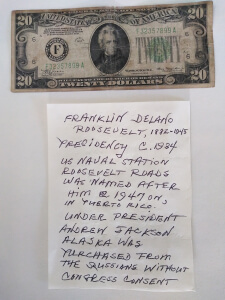 FEDERAL RESERVE NOTE
20
20
THE UNITED STATES OF AMERICA
F
20
TWENTY DOLLARS
20
FRANKLIN DELANO
ROOSEVELT, 1882-1945
PRESIDENCY C. 1934
US NAVAL STATION
ROOSEVELT ROADS
WAS NAMED AFTER
HIM @ 1947 ON,
IN PUERTO RICO.
UNDER PRESIDENT
ANDREW JACKSON
ALASKA WAS
PURCHASED FROM
THE RUSSIANS WITHOUT
CONGRESS CONSENT